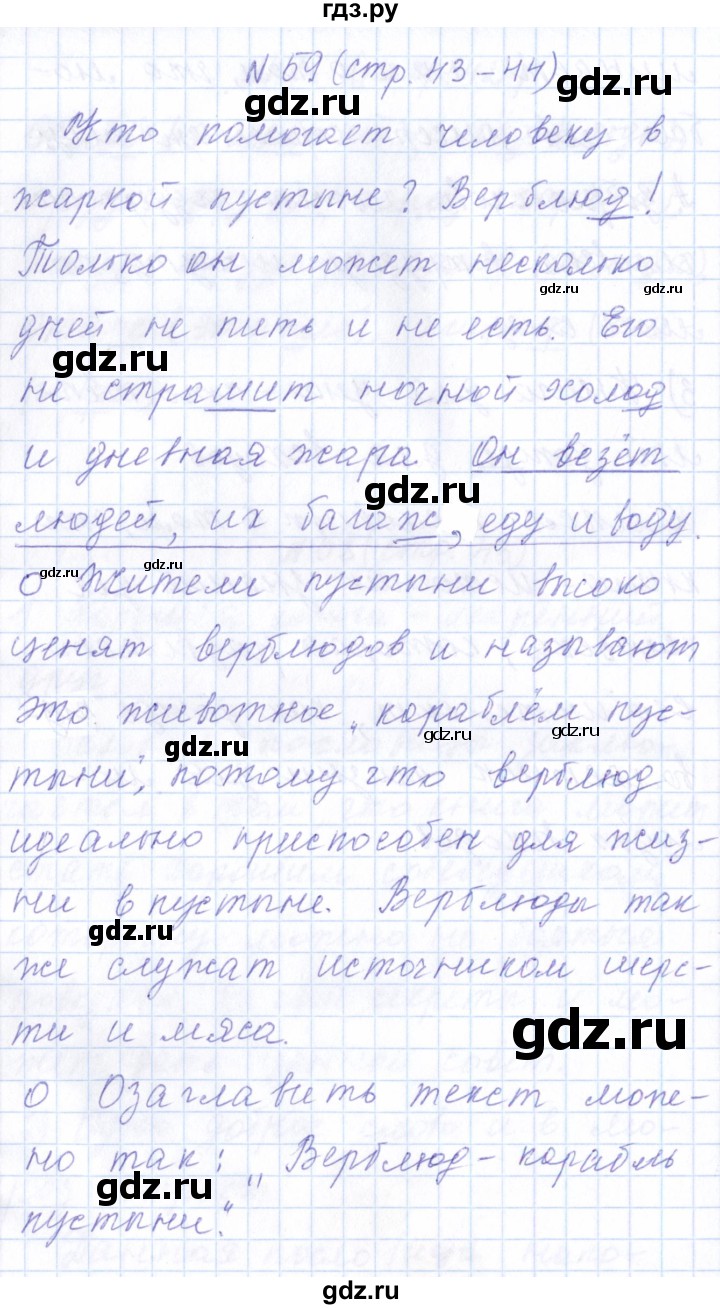 гдз.ру
N 59 (стр. 43-44)
gdz.ru
gdz.ru
Кто помогает человеку в
жаркой пустыне? Верблюд!
gdz.ru
Только он может несколько
gdz.ru
gdz.ru
дней не пить и не есть. Его
gdz.ru
не страшит ночной холод
и дневная жара. Он везёт
gdz.ru
людей, их багаж, еду и воду.
gdz.ru
gdz.ru
о Жители пустыни высоко
ценят верблюдов и называют
это животное „кораблём пус-
gdz.ru
gdz.ru
gdz.ru
тыни", потому что верблюд
идеально приспособен для жиз-
ни в пустыне. Верблюды так
gdz.ru
же служат источником шерс-
ти и мяса.
gdz.ru
о Озаглавить текст мож-
но так: „Верблюд - корабль
gdz.ru
пустыни".
gdz.ru